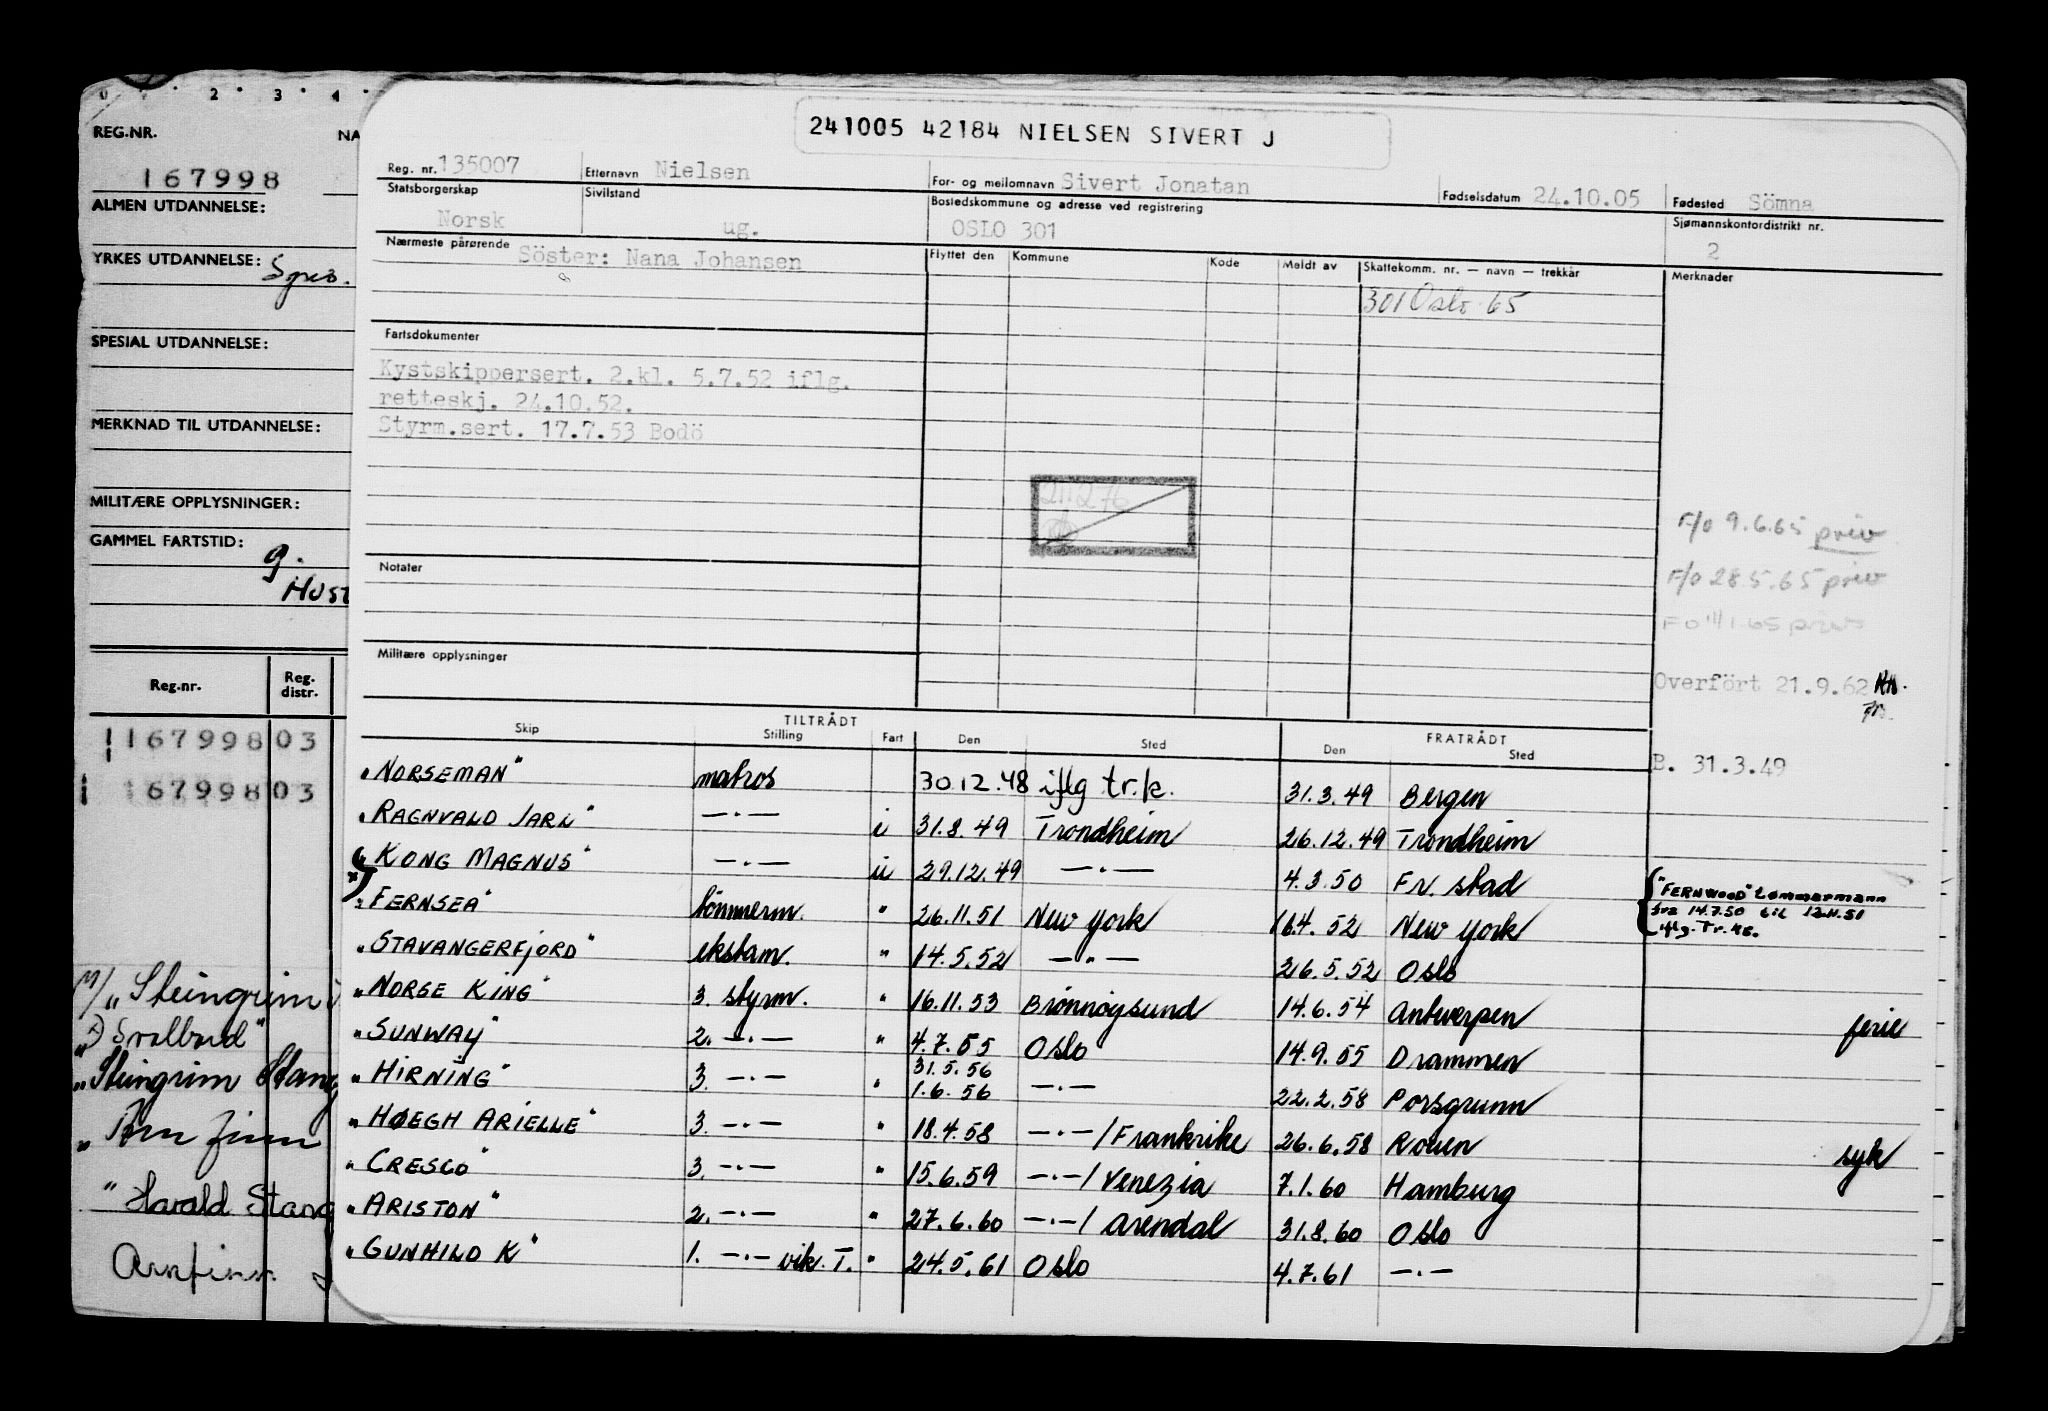 0 · 2 · 3 · 4 ·
REG.NR.
NA
167998
ALMEN UTDANNELSE:
YRKES UTDANNELSE:
SPESIAL UTDANNELSE:
MERKNAD TIL UTDANNELSE:
MILITÆRE OPPLYSNINGER:
GAMMEL FARTSTID:
g.
HUST
Reg.nr. Reg. distr.
167998 03
167998 03
"Steingrim
Svalbard"
"Steingrim Stang
"Harald Stang
Arnfinn
241005 42184 NIELSEN SIVERT J
Reg. nr. 135007 Etternavn Nielsen For- og mellomnavn Sivert Jonatan Fødselsdatum 24.10.05 Fødested Sömna
Statsborgerskap Sivilstand Bostedskommune og adresse ved registrering Sjømannskontordistrikt nr.
Norsk ug. OSLO 301 2
Nærmeste pårørende Söster: Nana Johansen Flyttet den Kommune Kode Meldt av Skattekomm. nr. — navn — trekkår Merknader
301 Oslo 65
Fartsdokumenter
Kystskippersert. 2.kl. 5.7.52 iflg.
retteskj. 24.10.52.
Styrm.sert. 17.7.53 Bodö
F/o 9.6.65 priv
Notater
F/o 28.5.65 priv
Militære opplysninger
Overfört 21.9.62
TILTRÅDT FRATRÅDT
Skip Stilling Fart Den Sted Den Sted
B. 31.3.49
"NORSEMAN" matros 30.12.48 iflg tr.k. 31.3.49 Bergen
"RAGNVALD JARL" —·— i 31.8.49 Trondheim 26.12.49 Trondheim
"KONG MAGNUS" —·— u 29.12.49 —·— 4.3.50 Fr. stad
"FERNWOOD" tømmermann
fra 14.7.50 til 12.11.51
iflg. Tr.k.
"FERNSEA" tömmerm. " 26.11.51 New York 16.4.52 New York
"STAVANGERFJORD" ekstam. " 14.5.52 —"— 26.5.52 Oslo
"NORSE KING" 3. styrm. " 16.11.53 Brønnøysund 14.6.54 Antwerpen ferie
"SUNWAY" 2. —·— " 4.7.55 Oslo 14.9.55 Drammen
31.5.56
"HIRNING" 3. —·— " 1.6.56 —·— 22.2.58 Porsgrunn
"HØEGH ARIELLE" 3. —·— " 18.4.58 —·—/Frankrike 26.6.58 Rouen syk
"CRESCO" 3. —·— " 15.6.59 —·—/Venezia 7.1.60 Hamburg
"ARISTON" 2. —·— " 27.6.60 —·—/Arendal 31.8.60 Oslo
"GUNHILD K" 1. —·— vik. T. " 24.5.61 Oslo 4.7.61 —·—